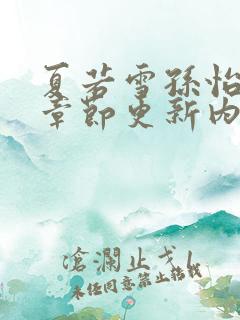 夏若雪孙怡
章节更新内
沧澜止戈
未经同意禁止搬载